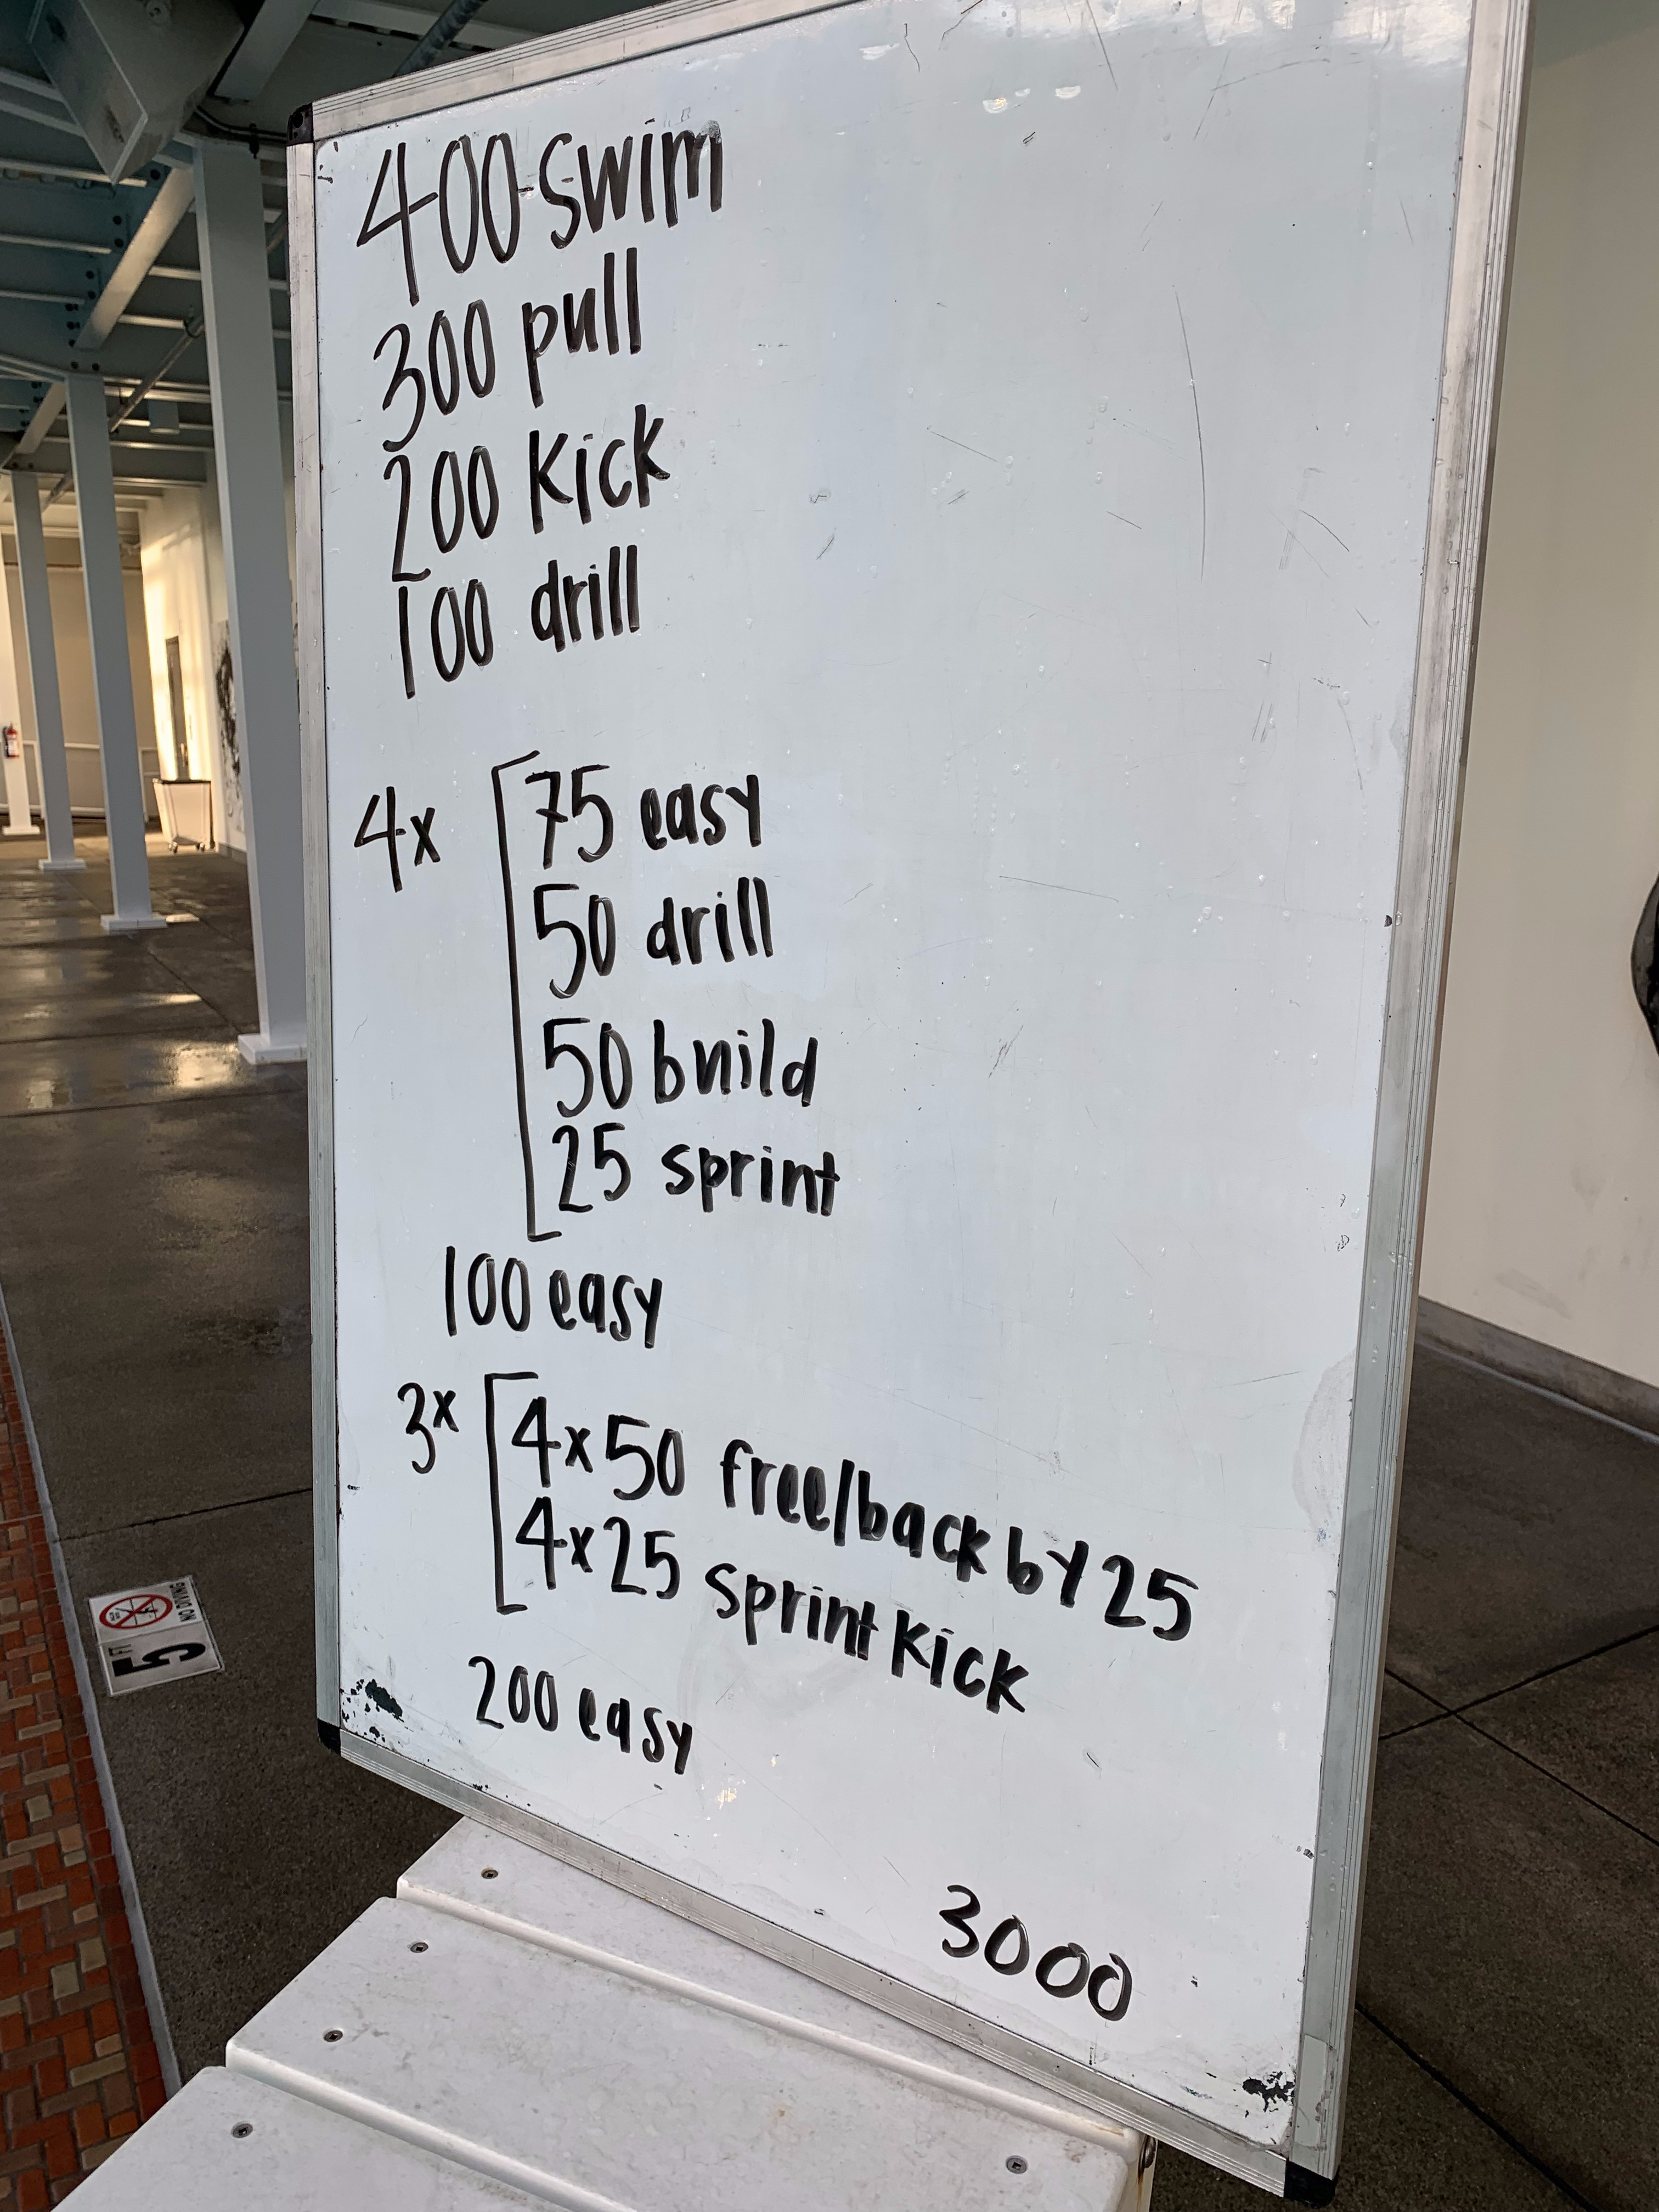 400 swim
300 pull
200 kick
100 drill
4x [75 easy
50 drill
50 build
25 sprint
100 easy
3x [4x50 free/back by 25
4x25 sprint kick
200 easy
3000
NO DIVING
5 FT